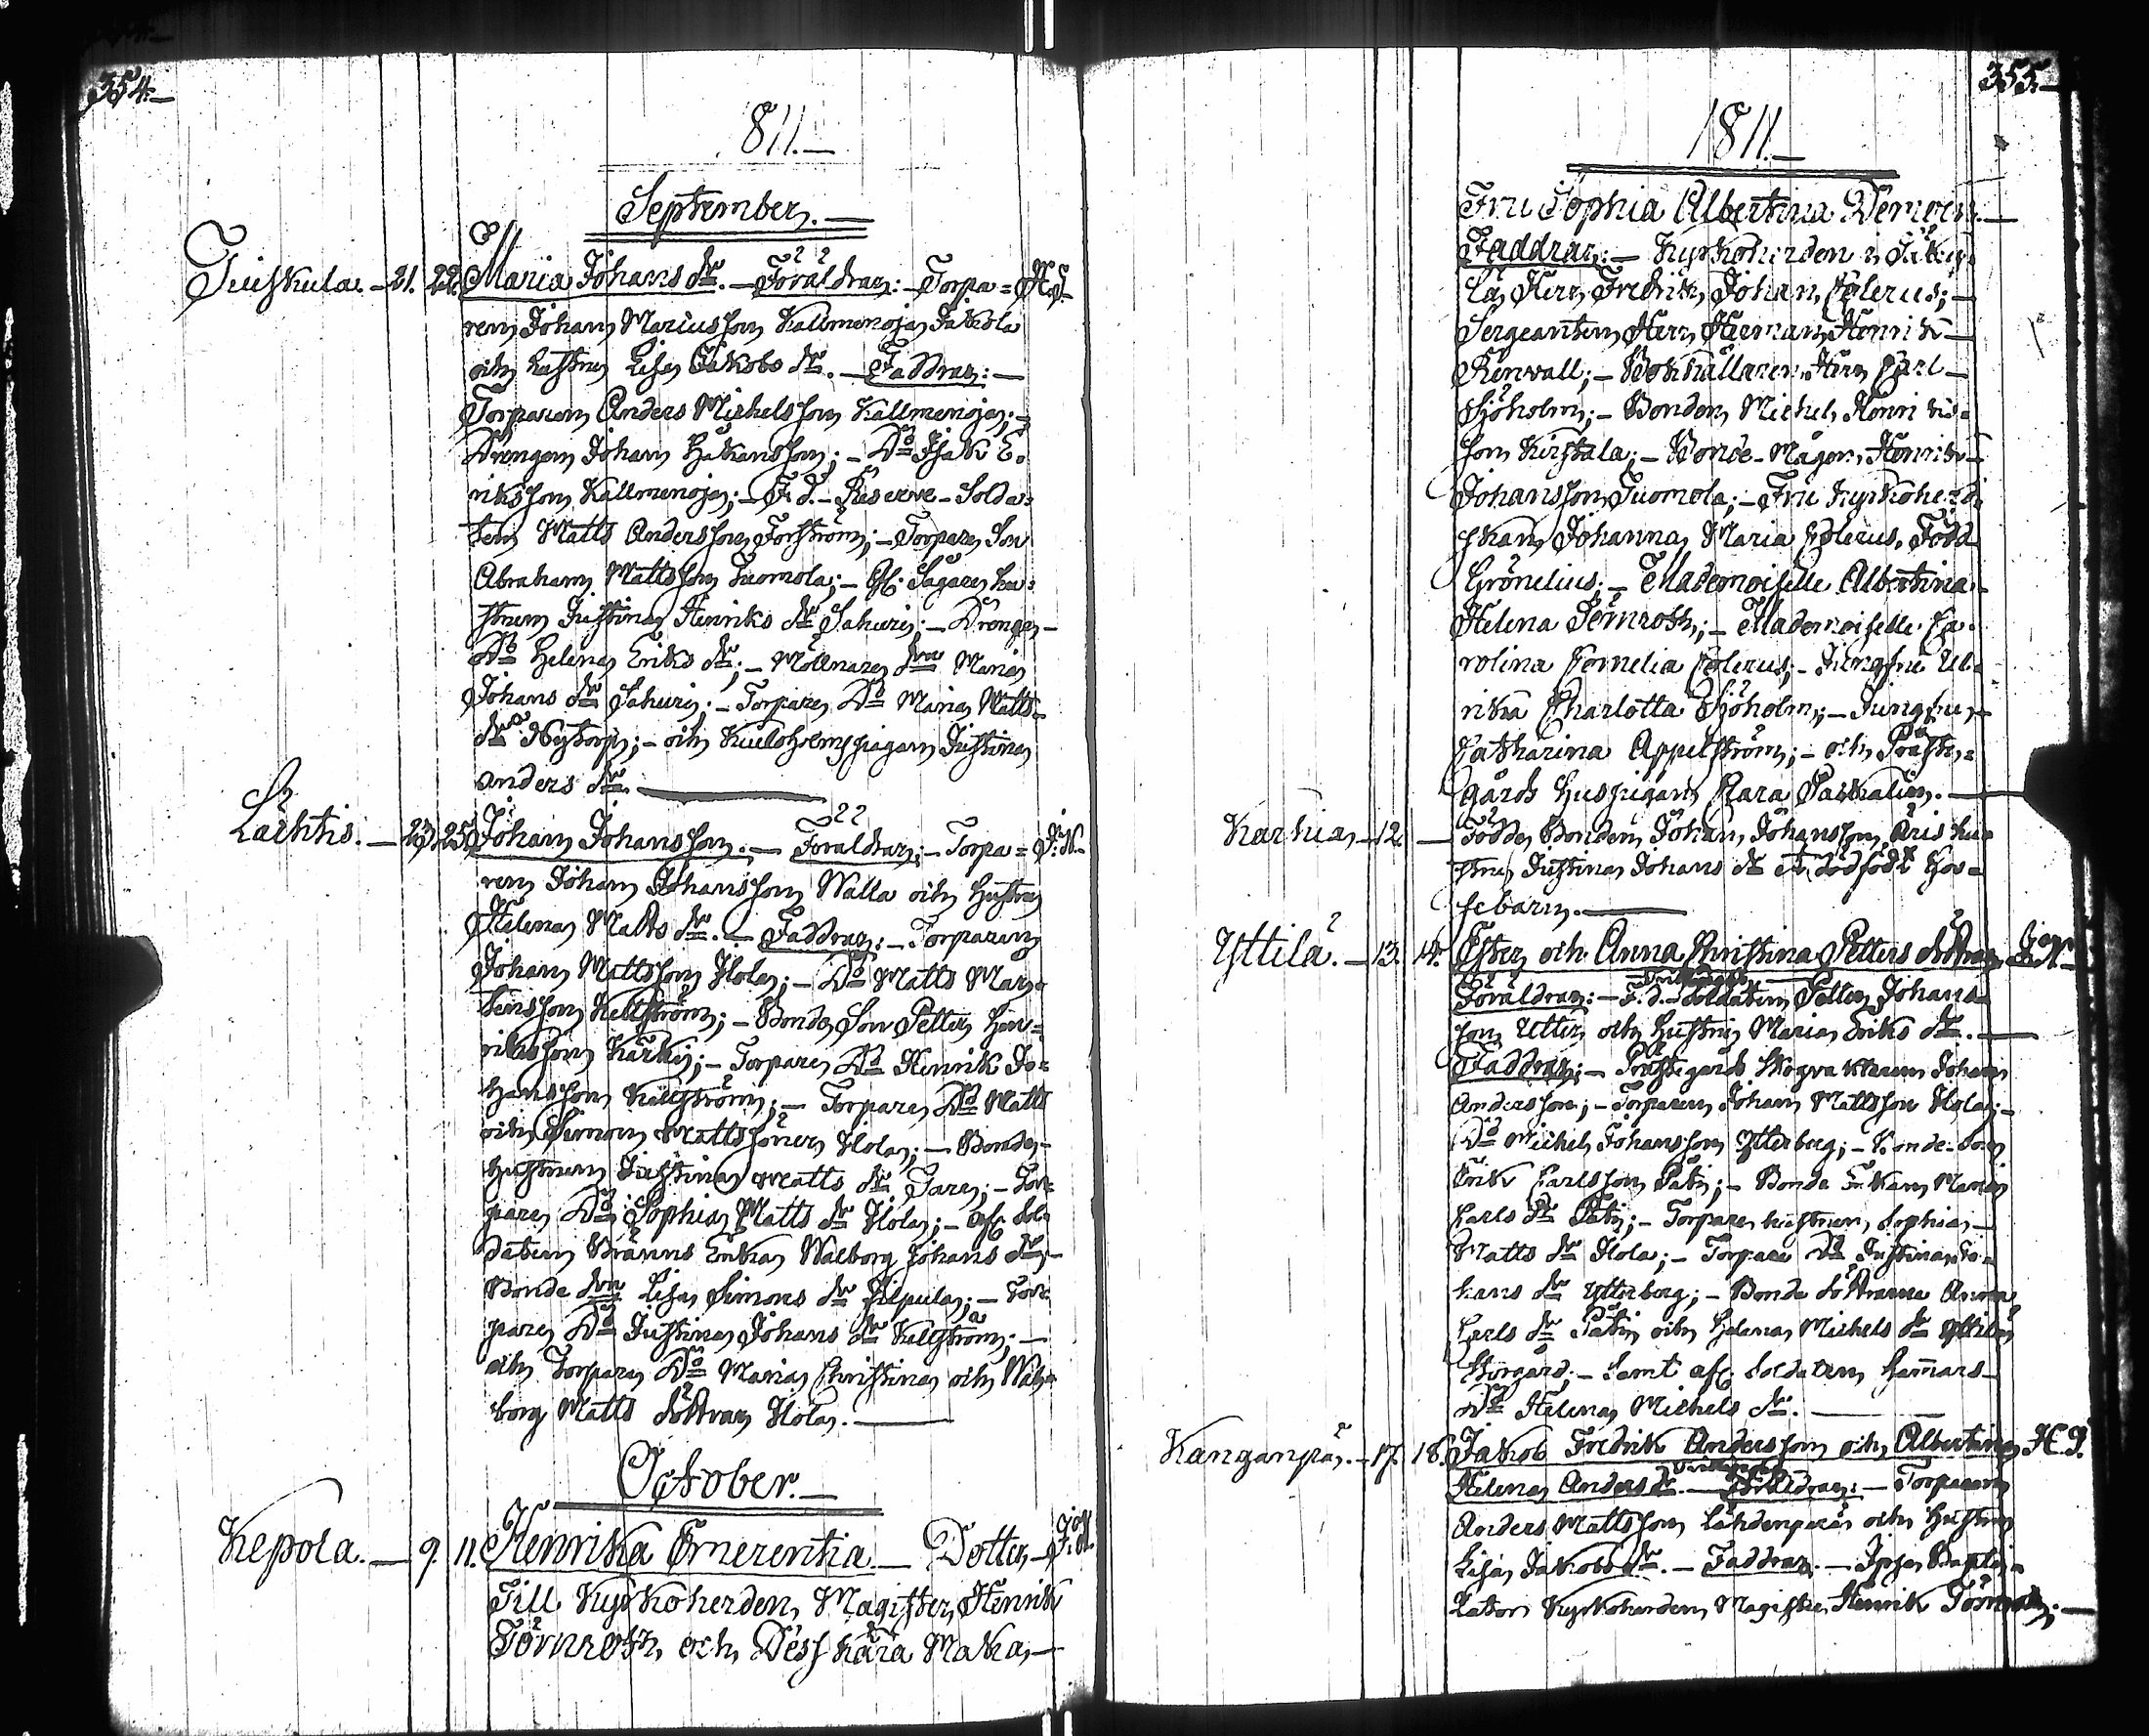 354.
811.
September.
Tuiskula. 21. 22. Maria Johans dr. Föräldrar: Torpa= H.T.
ren Johan Mariusson Kallmenoja Jakola
och hustru Lisa Jakobs dr. Faddrar:
Torparen Anders Michelsson Kallmenoja;
Drengen Johan Håkansson; Do Isak E=
riksson Kallmenoja; F.d. Reserve-Solda=
ten Matts Andersson Forsström; Torpare Son
Abraham Mattsson Tuomola; Hu=
strun Justina Henriks dr Sahuri; Drenge
Do Helena Eriks dr; Möllnare Maria
Johans dr Sahuri; Torpare Do Maria Matts
dr Nytorp; och Justina
Anders dr.
Lächtis. 23. 25. Johan Johansson. Föräldrar: Torpa= J.N.
ren Johan Johansson Walla och Hustru
Helena Matts dr. Faddrar: Torparen
Johan Mattsson Hola; Do Matts Mar=
tensson Kellström; Bonde Son Petter Hen=
riksson Kärki; Torpare Do Henrik Jo=
hansson Källström; Torpare Do Matts
och Simon Mattssöner Hola; Bonde
Hustrun Justina Matts dr Tara; Tor=
pare Do Sophia Matts dr Hola; afsk. Sol=
daten Bränns Enka Walborg Johans dr;
Bonde Lisa Simons dr Pilpula; Tor=
pare Do Justina Johans dr Källström;
och Torpare Do Maria Christina och Wal=
borg Matts döttrar Hola.
October.
Kepola. 9. 11. Henrika Emerentia. Dotter J.N.
Till Kyrkoherden, Magister Henrik
Törnroth, och Dess kära Maka,
355.
1811.
Fru Sophia Albertina
Faddrar: Kyrkoherden i Säky=
lä, Herr Fredrik Johan Polerus;
Sergeanten Herr Herman Henrik
Renwall; Bokhållaren Herr Carl
Sjöholm; Bonden Michel Henriks=
son Kirstala; Bonde-Mågen Henrik
Johansson Tuomola; Fru Kyrkoherd=
skan Johanna Maria Polerus, Född
Grönelius; Mademoiselle Albertina
Helena Törnroth; Mademoiselle Ca=
rolina Cornelia Polerus; Jungfru Ul=
rika Charlotta Sjöholm; Jungfru
Catharina Appelström; och Präst=
gårds Huspigan Clara
Karhia. 12. Födde Bonden Johan Johansson Äris hu=
stru Justina Johans dr ett dödfödt Gos=
sebarn.
Yttilä. 13. 14. Ester och Anna Christina Petters döttrar J.N.
Tvillingar
Föräldrar: F.d. Soldaten Petter Johans=
son Utter och Hustru Maria Eriks dr.
Faddrar: Prästegårds Skogvaktaren Johan
Andersson; Torparen Johan Mattsson Hola;
Do Michel Johansson Ytterberg; Bonde-Son
Erik Carlsson Päti; Bonde Enkan Maria
Carls dr Päti; Torpare hustrun Sophia
Matts dr Hola; Torpare Do Justina Jo=
hans dr Ytterberg; Bonde döttrarne Anna
Carls dr Päti och Helena Michels dr Yttilä
Storgård; Samt afsk. Soldaten Hammars
Do Helena Michels dr.
Kanganpä. 17. 18. Jakob Fredrik Andersson och Albertina H.T.
Tvillingar
Helena Anders dr. Föräldrar: Torparen
Anders Mattsson Lähdenperä och Hustru
Lisa Jakobs dr. Faddrar: Ipse Bapti=
sator Kyrkoherden, Magister Henrik Törnroth;